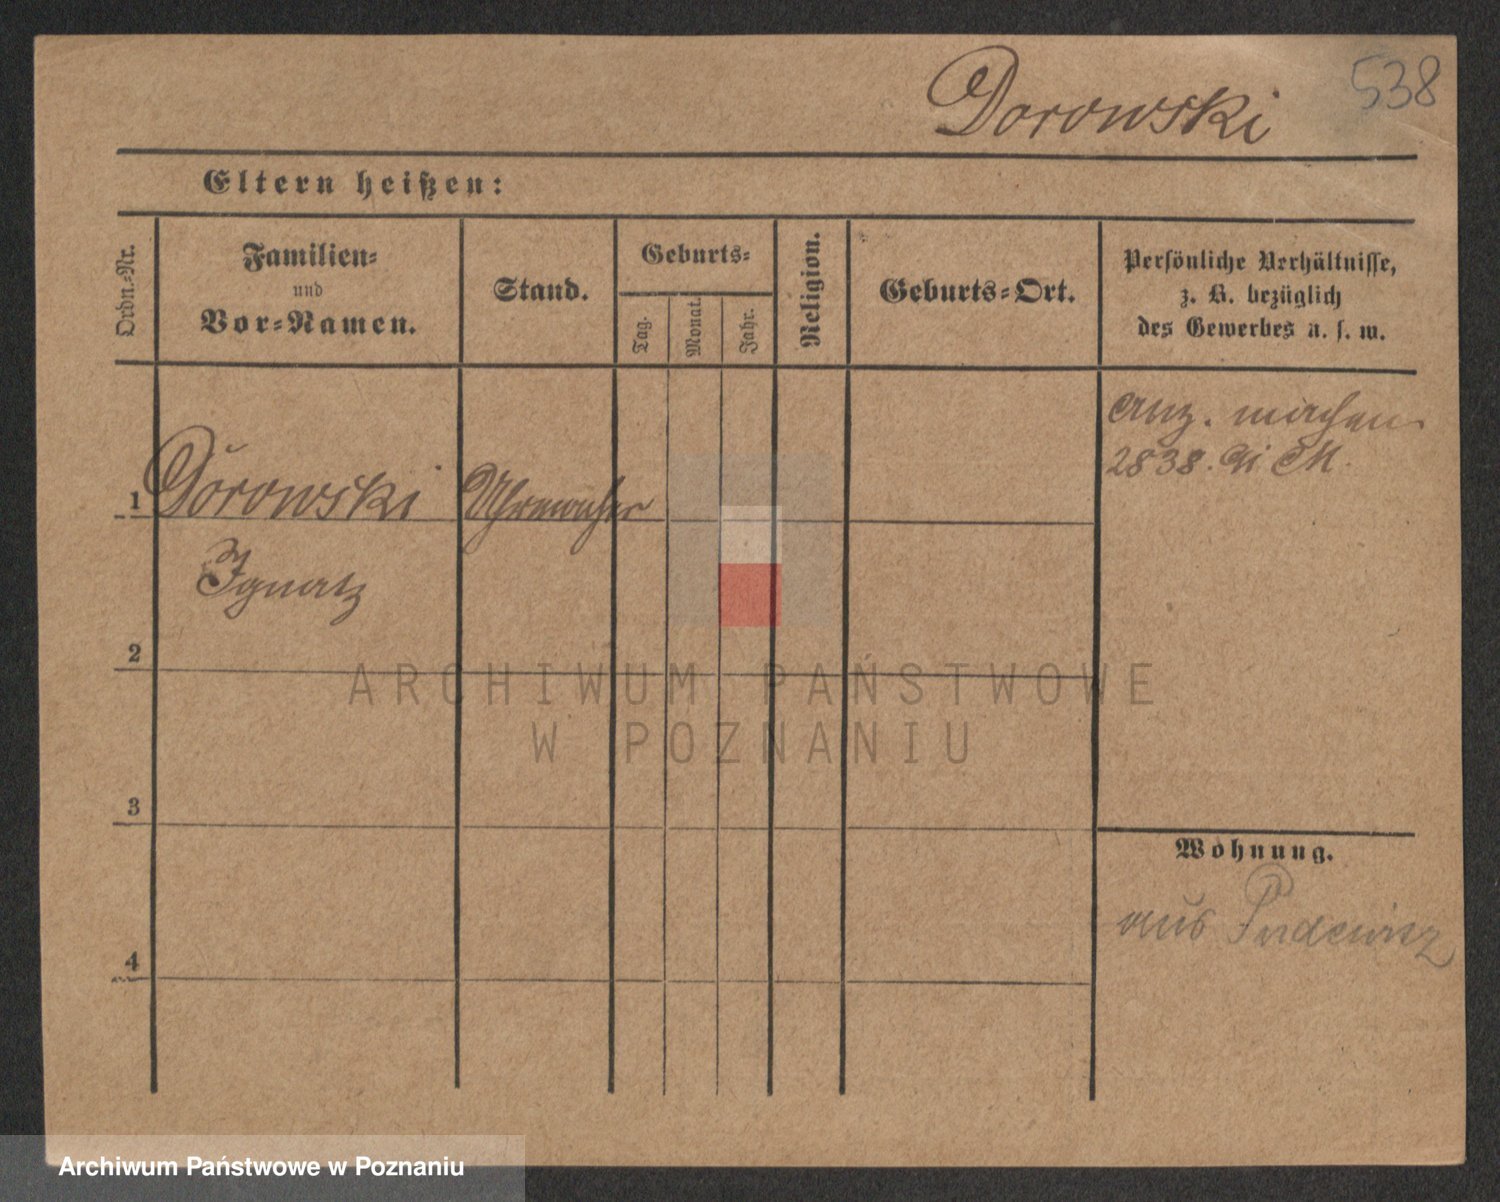 538
Dorowski
Eltern heißen:
Ordn.-Nr.
Familien-
und
Vor-Namen.
Stand.
Geburts-
Tag.
Monat.
Jahr.
Religion.
Geburts-Ort.
Persönliche Verhältnisse,
z. B. bezüglich
des Gewerbes u. s. w.
Anz. machen
2838. M.
1 Dorowski Uhrmacher
Ignatz
2
ARCHIWUM PAŃSTWOWE
W POZNANIU
3
Wohnung.
aus Pudewitz
4
Archiwum Państwowe w Poznaniu